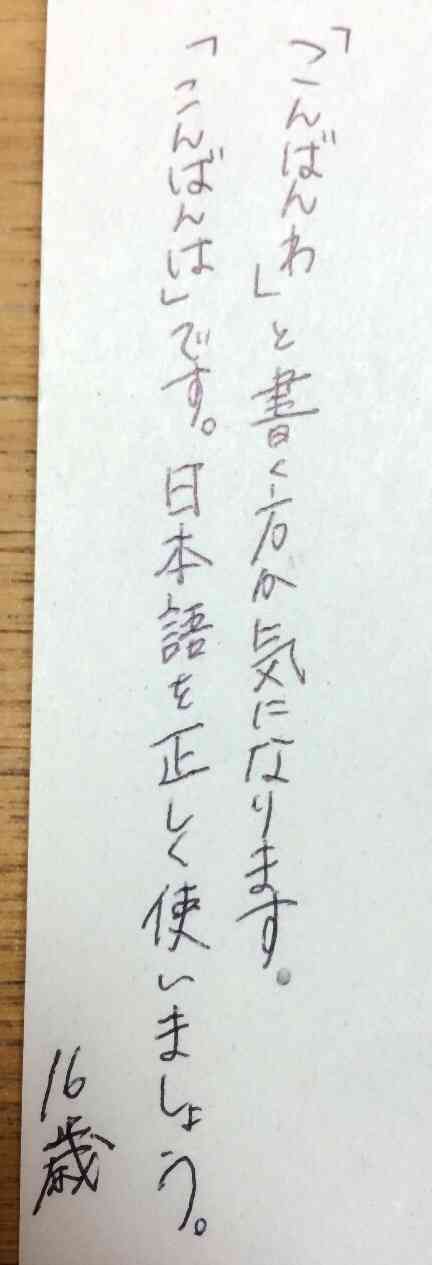 「こんばんわ」と書く方が気になります。
「こんばんは」です。日本語を正しく使いましょう。
16歳